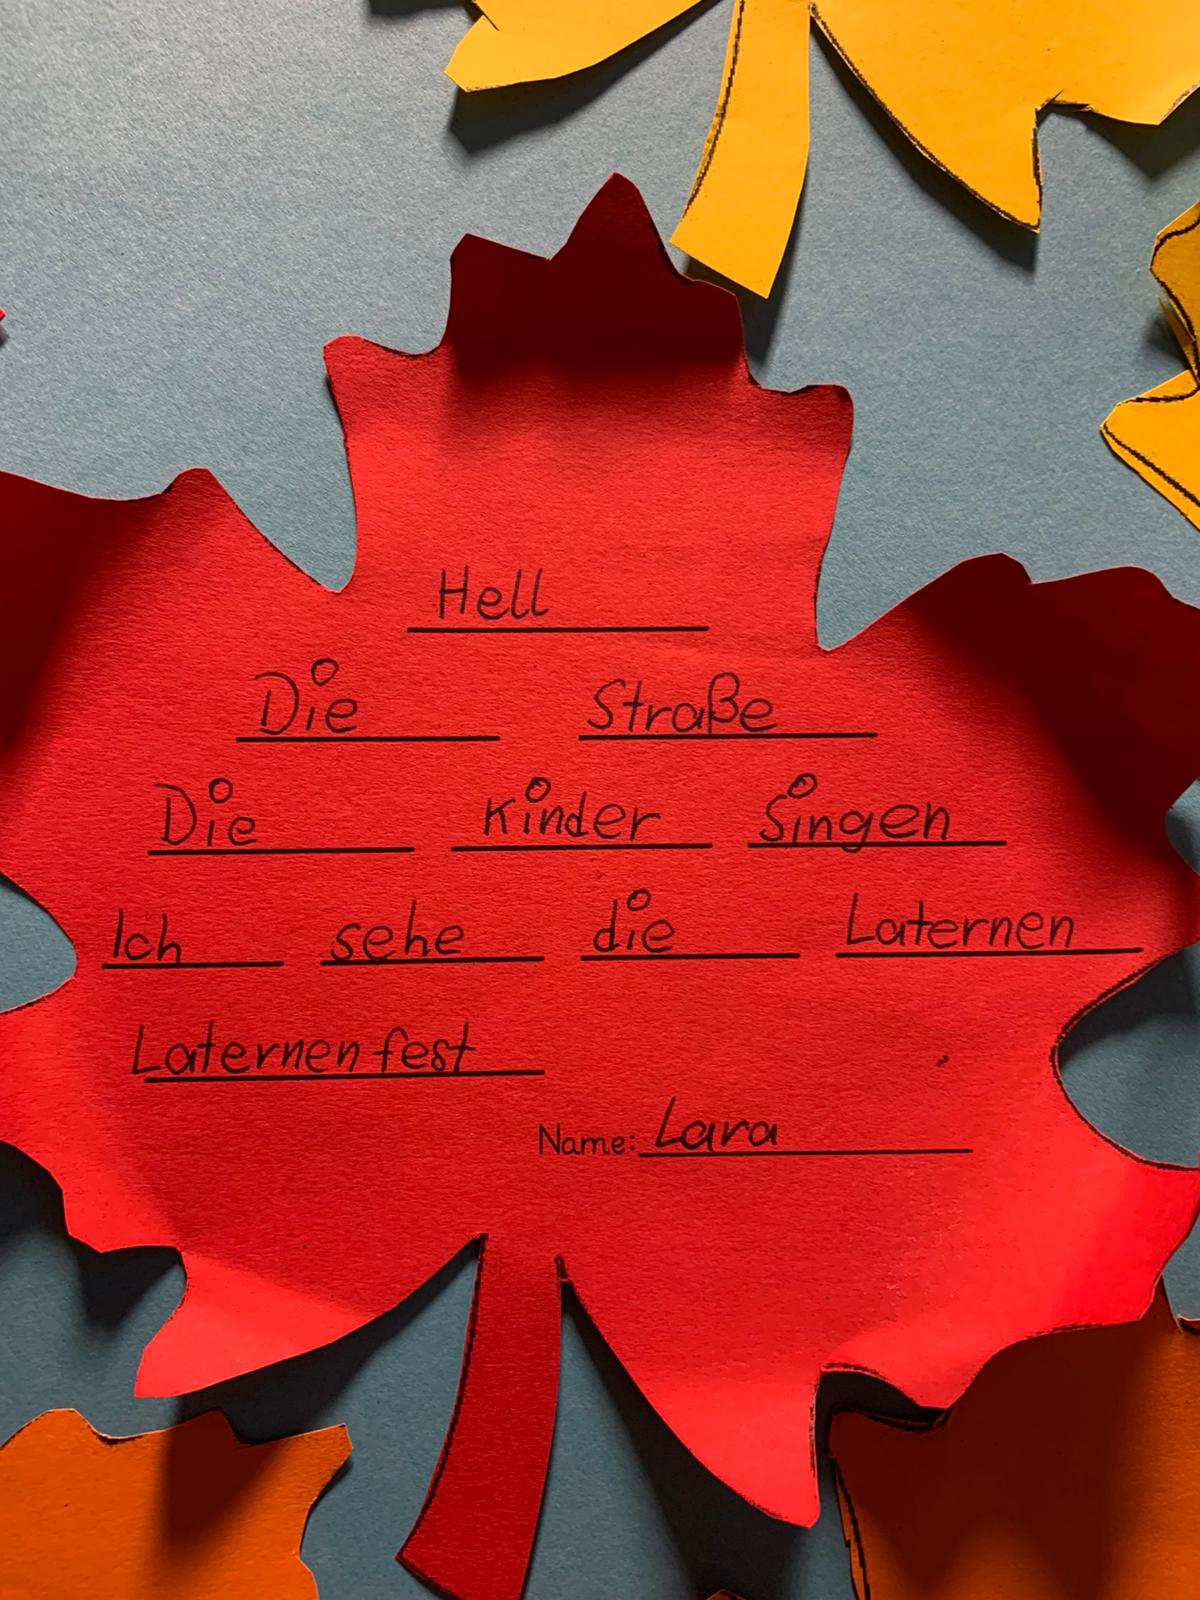 Hell
Die Straße
Die Kinder Singen
Ich sehe die Laternen
Laternenfest
Name: Lara